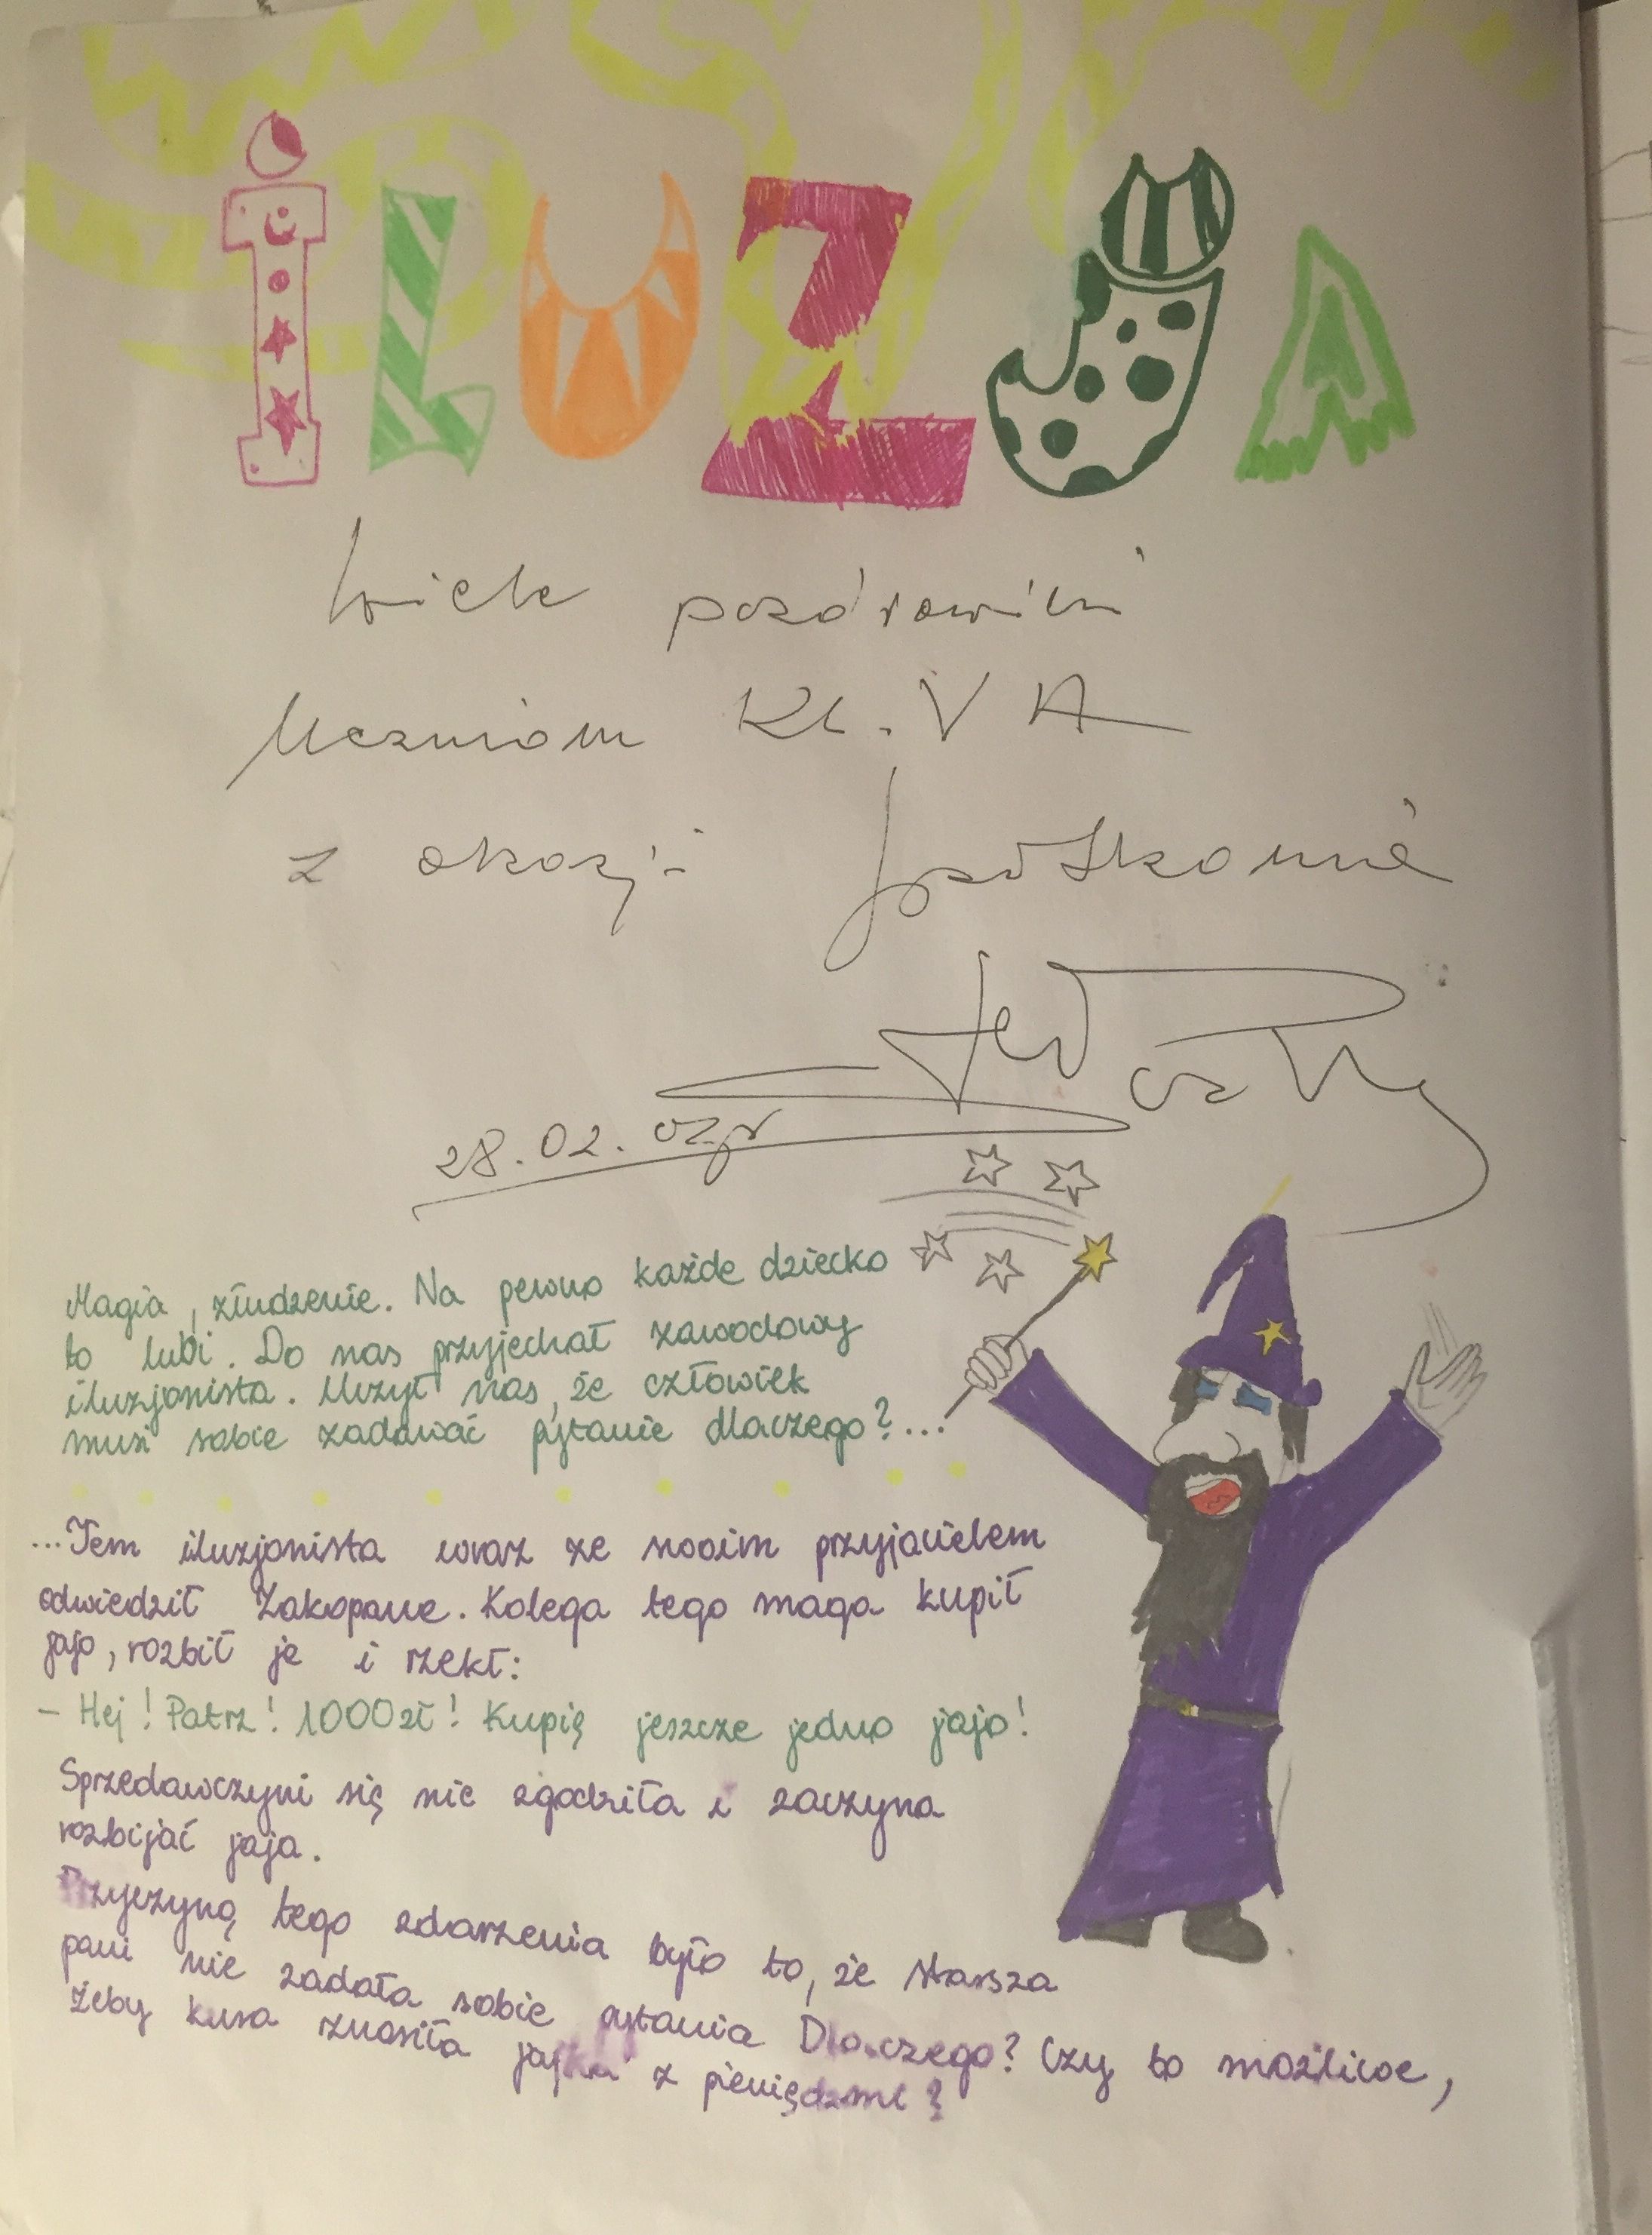 iLUZJA
Wiele pozdrowień
Uczniom Kl. V A
z okazji spotkania
28.02.02r
Magia, złudzenie. Na pewno każde dziecko
to lubi. Do nas przyjechał zawodowy
iluzjonista. Uczył nas, że człowiek
musi sobie zadawać pytanie dlaczego?...
...Ten iluzjonista wraz ze swoim przyjacielem
odwiedził Zakopane. Kolega tego maga kupił
jajo, rozbił je i rzekł:
- Hej! Patrz! 1000zł! Kupię jeszcze jedno jajo!
Sprzedawczyni się nie zgodziła i zaczyna
rozbijać jaja.
Przyczyną tego zdarzenia było to, że starsza
pani nie zadała sobie pytania Dlaczego? Czy to możliwe,
żeby kura znosiła jajka z pieniędzmi?